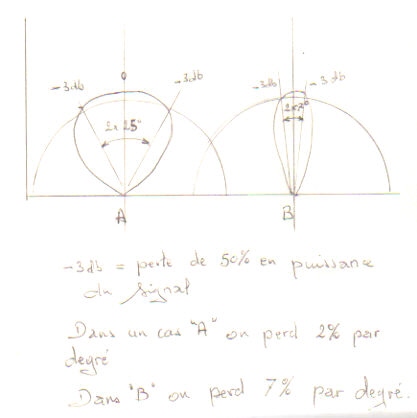 0
-3db
-3db
2x25°
A
-3db
-3db
2x7°
B
-3db = perte de 50% en puissance
du signal
Dans un cas "A" on perd 2% par
degré
Dans "B" on perd 7% par degré.